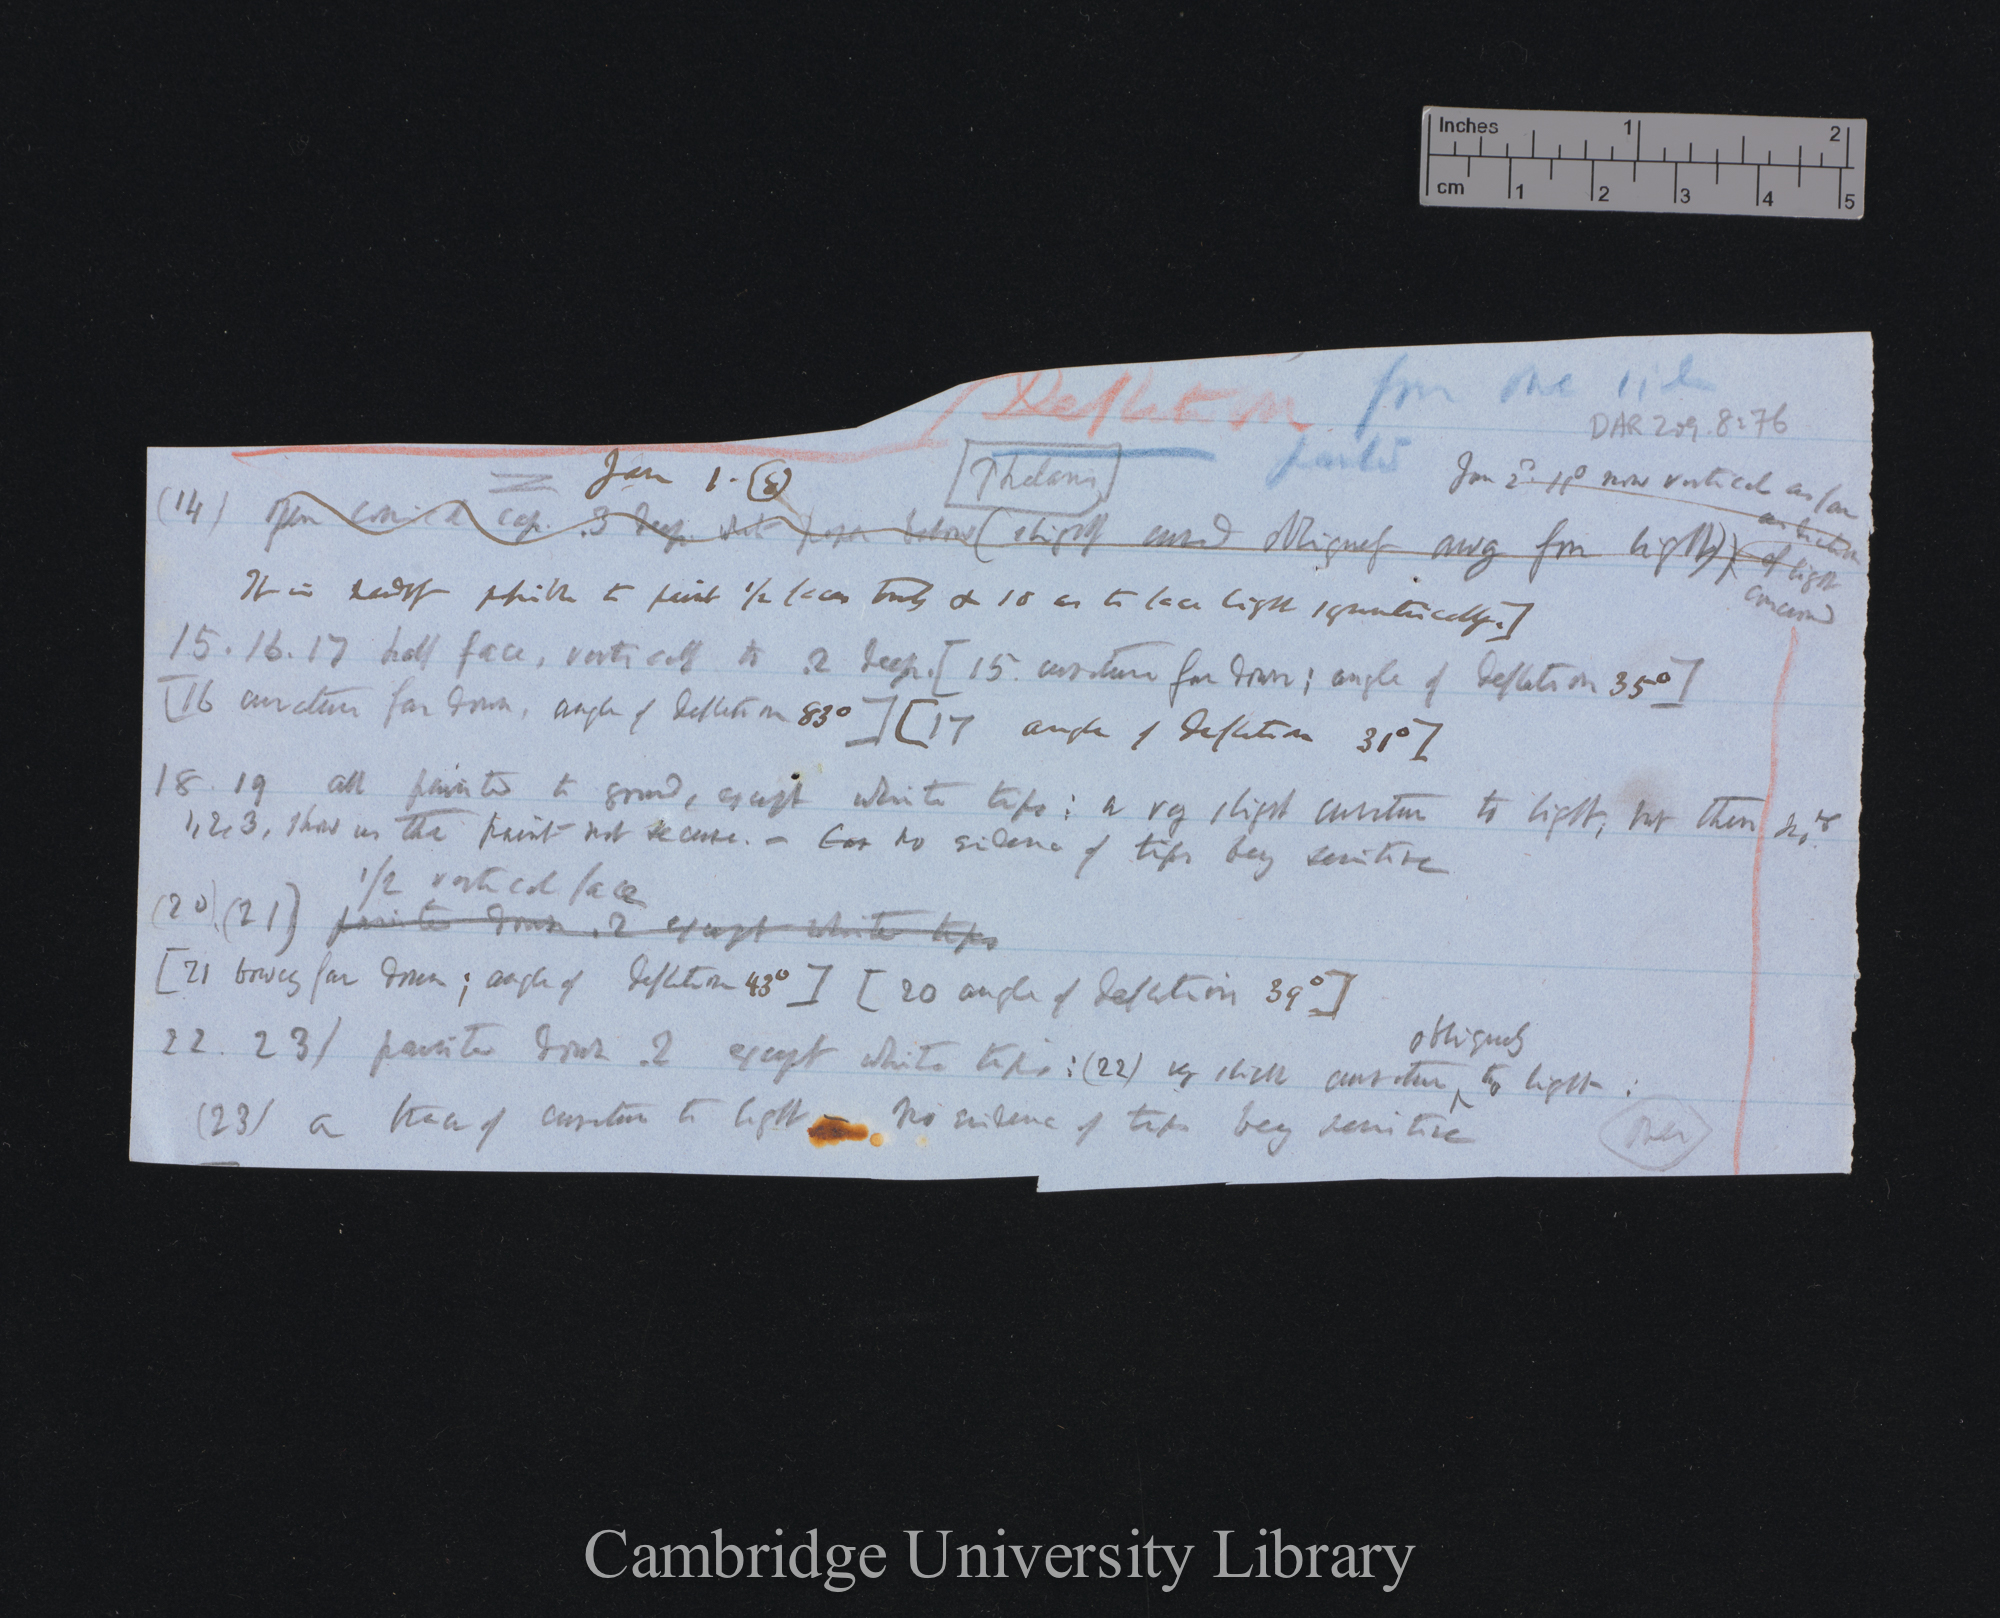 Inches 1 2
cm 1 2 3 4 5
Deflection from one side
painted
DAR 209.8:76
Jan 1. (8)
Phalaris
Jan 2d 11° now vertical as far
as action
of light
concerned
(14) open conical cap .3 deep. below (slightly curved obliquely away from light)
It is hardly possible to paint 1/2 faces truly & so as to face light symmetrically.]
15. 16. 17 half face, vertically to .2 deep. [15. curvature far down; angle of deflection 35°]
[16 curvature far down, angle of deflection 83°] [17 angle of deflection 31°]
18. 19 all painted to ground, except white tips: a very slight curvature to light, but then nos
1, 2, 3, show us that paint not secure. – no evidence of tips being sensitive
1/2 vertical face
(20) (21) painted down .2 except white tips
[21 bowed far down; angle of deflection 43°] [20 angle of deflection 39°]
obliquely
22. 23/ painted down .2 except white tips: (22) very slight curvature ^ to light:
(23/ a trace of curvature to light – No evidence of tips being sensitive
over
Cambridge University Library